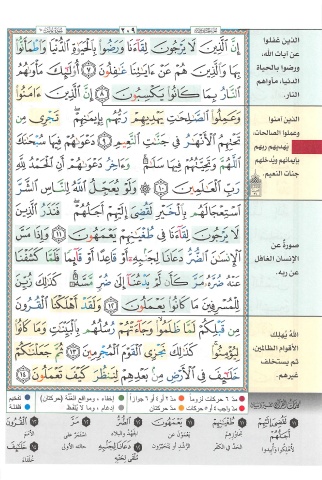 ٢٠٩
إِنَّ ٱلَّذِينَ لَا يَرْجُونَ لِقَآءَنَا وَرَضُوا۟ بِٱلْحَيَوٰةِ ٱلدُّنْيَا وَٱطْمَأَنُّوا۟
بِهَا وَٱلَّذِينَ هُمْ عَنْ ءَايَٰتِنَا غَٰفِلُونَ ٧ أُو۟لَٰٓئِكَ مَأْوَىٰهُمُ
ٱلنَّارُ بِمَا كَانُوا۟ يَكْسِبُونَ ٨ إِنَّ ٱلَّذِينَ ءَامَنُوا۟
وَعَمِلُوا۟ ٱلصَّٰلِحَٰتِ يَهْدِيهِمْ رَبُّهُم بِإِيمَٰنِهِمْ تَجْرِى مِن
تَحْتِهِمُ ٱلْأَنْهَٰرُ فِى جَنَّٰتِ ٱلنَّعِيمِ ٩ دَعْوَىٰهُمْ فِيهَا سُبْحَٰنَكَ
ٱللَّهُمَّ وَتَحِيَّتُهُمْ فِيهَا سَلَٰمٌ وَءَاخِرُ دَعْوَىٰهُمْ أَنِ ٱلْحَمْدُ لِلَّهِ
رَبِّ ٱلْعَٰلَمِينَ ١٠ وَلَوْ يُعَجِّلُ ٱللَّهُ لِلنَّاسِ ٱلشَّرَّ
ٱسْتِعْجَالَهُم بِٱلْخَيْرِ لَقُضِىَ إِلَيْهِمْ أَجَلُهُمْ فَنَذَرُ ٱلَّذِينَ
لَا يَرْجُونَ لِقَآءَنَا فِى طُغْيَٰنِهِمْ يَعْمَهُونَ ١١ وَإِذَا مَسَّ
ٱلْإِنسَٰنَ ٱلضُّرُّ دَعَانَا لِجَنۢبِهِۦٓ أَوْ قَاعِدًا أَوْ قَآئِمًا فَلَمَّا كَشَفْنَا
عَنْهُ ضُرَّهُۥ مَرَّ كَأَن لَّمْ يَدْعُنَآ إِلَىٰ ضُرٍّ مَّسَّهُۥ كَذَٰلِكَ زُيِّنَ
لِلْمُسْرِفِينَ مَا كَانُوا۟ يَعْمَلُونَ ١٢ وَلَقَدْ أَهْلَكْنَا ٱلْقُرُونَ
مِن قَبْلِكُمْ لَمَّا ظَلَمُوا۟ وَجَآءَتْهُمْ رُسُلُهُم بِٱلْبَيِّنَٰتِ وَمَا كَانُوا۟
لِيُؤْمِنُوا۟ كَذَٰلِكَ نَجْزِى ٱلْقَوْمَ ٱلْمُجْرِمِينَ ١٣ ثُمَّ جَعَلْنَٰكُمْ
خَلَٰٓئِفَ فِى ٱلْأَرْضِ مِنۢ بَعْدِهِمْ لِنَنظُرَ كَيْفَ تَعْمَلُونَ ١٤
الذين غفلوا
عن آيات الله،
ورضوا بالحياة
الدنيا، مأواهم
النار.
الذين آمنوا
وعملوا الصالحات،
يهديهم ربهم
بإيمانهم ويُدخلهم
جنات النعيم.
صورة عن
الإنسان الغافل
عن ربه.
الله يُهلك
الأقوام الظالمين،
ثم يستخلف
غيرهم.
مدّ ٦ حركات لزوماً
مدّ ٢ أو ٤ أو ٦ جوازاً
إخفاء، ومواقع الغنّة (حركتان)
تفخيم
مدّ واجب ٤ أو ٥ حركات
مدّ حركتان
إدغام، وما لا يُلفظ
قلقلة
لَقُضِىَ إِلَيْهِمْ أَجَلُهُمْ
طُغْيَٰنِهِمْ
يَعْمَهُونَ
ٱلضُّرُّ
مَرَّ
ٱلْقُرُونَ
دَعَانَا لِجَنۢبِهِۦٓ
خَلَٰٓئِفَ